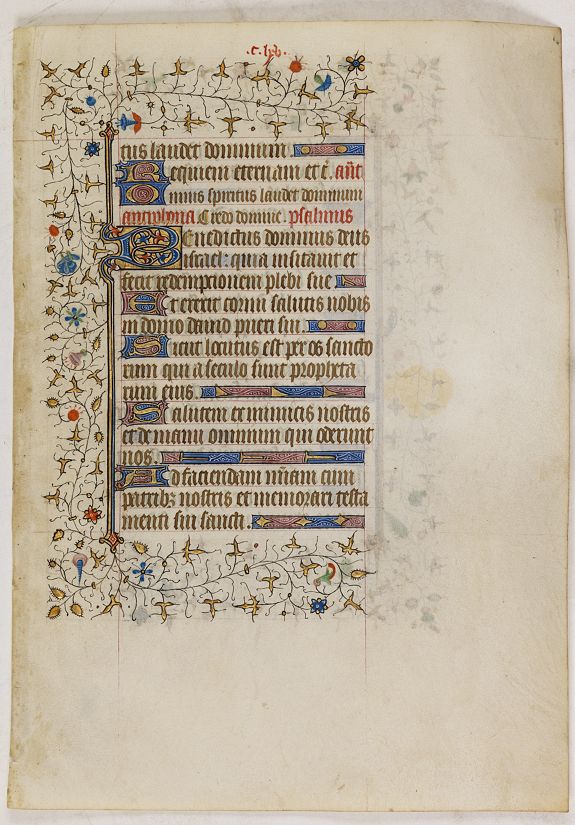 .c. lxv.
tus laudet dominum.
Requiem eternam et c̄. añt.
Omnis spiritus laudet dominum
antiphona Credo domine. psalmus
Benedictus dominus deus
israel: quia uisitauit et
fecit redempcionem plebi sue
Et erexit cornu salutis nobis
in domo dauid pueri sui.
Sicut locutus est per os sancto
rum qui a seculo sunt propheta
rum eius.
Salutem ex inimicis nostris
et de manu omnium qui oderunt
nos.
Ad faciendam mīam cum
patribꝫ nostris et memorari testa
menti sui sancti.